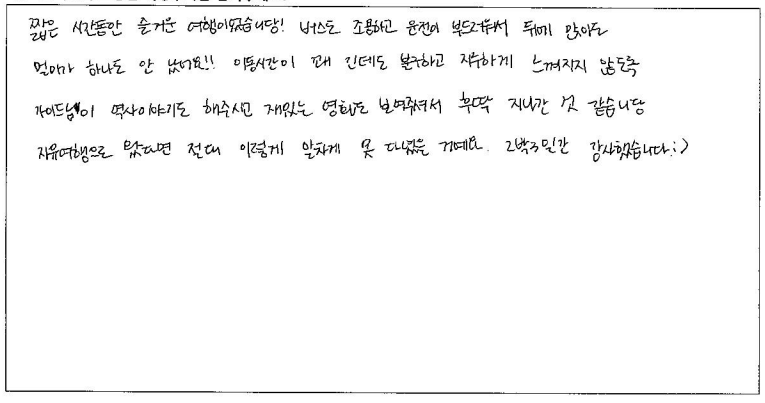 짧은 시간동안 즐거운 여행이었습니당! 버스도 조용하고 운전이 부드러우셔서 뒤에 앉아도
멀미가 하나도 안 났어요!! 이동시간이 꽤 긴데도 불구하고 지루하게 느껴지지 않도록
가이드님이 역사이야기도 해주시고 재밌는 영화도 보여주셔서 후딱 지나간 것 같습니당
자유여행으로 왔다면 절대 이렇게 알차게 못 다녔을 거예요. 2박3일간 감사했습니다:)